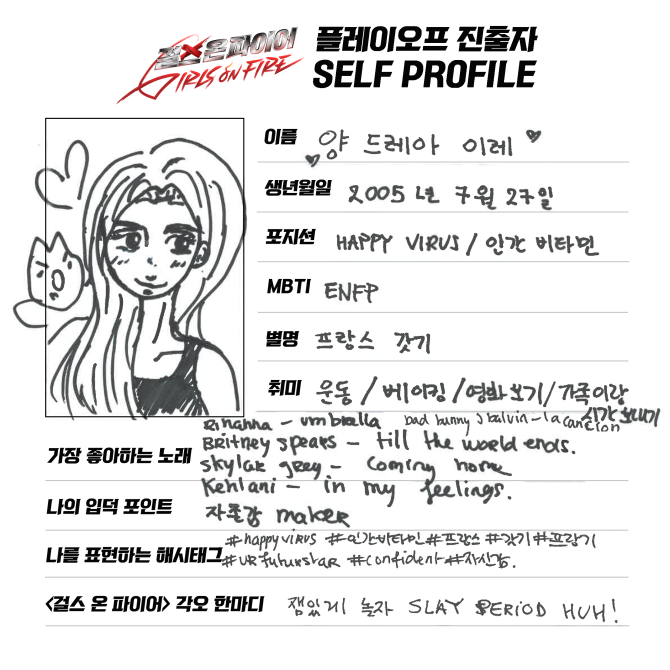 걸스 온 파이어
GIRLS ON FIRE
플레이오프 진출자
SELF PROFILE
이름 양 드레아 이레
생년월일 2005년 7월 27일
포지션 HAPPY VIRUS / 인간 비타민
MBTI ENFP
별명 프랑스 갓기
취미 운동 / 베이킹 / 영화보기 / 가족이랑 시간 보내기
가장 좋아하는 노래 Rihanna - umbrella bad bunny J balvin - la canción
Britney spears - till the world ends.
skylar grey - coming home
Kehlani - in my feelings.
나의 입덕 포인트 자존감 maker
나를 표현하는 해시태그 #happyvirus #인간비타민 #프랑스 #갓기 #프랑기
#URfuturstar #confident #자신감.
<걸스 온 파이어> 각오 한마디 잼있게 놀자 SLAY PERIOD HUH!